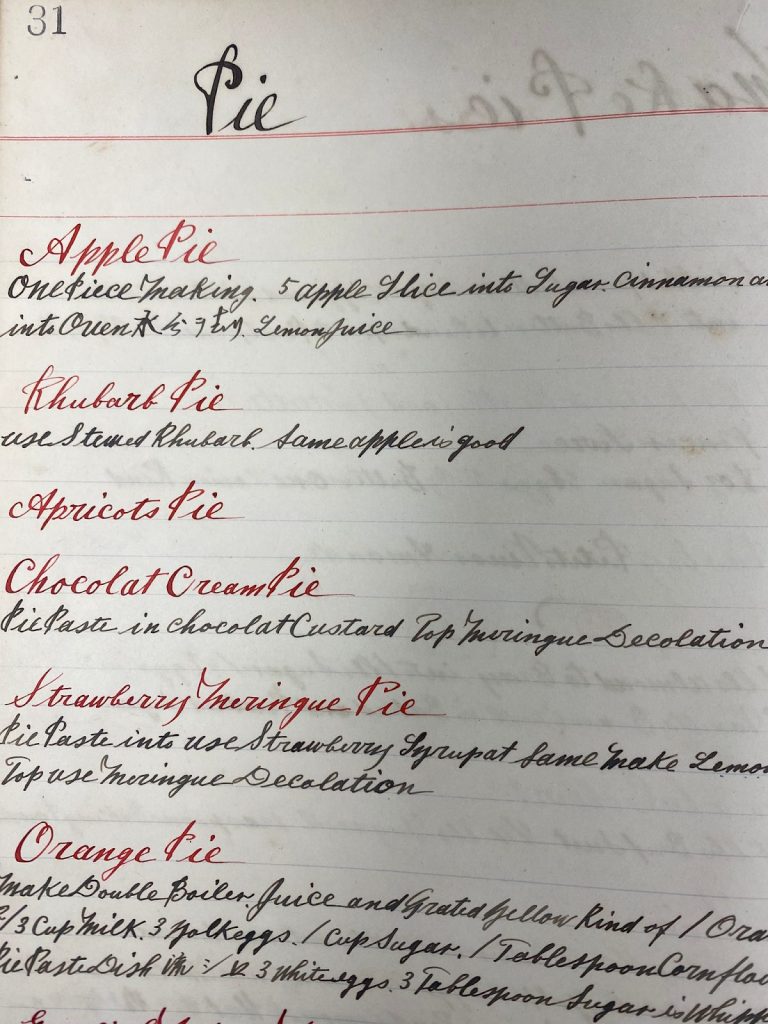 31
Pie
Apple Pie
One Piece Making. 5 apple Slice into Sugar. Cinnamon
into Oven Lemon Juice
Rhubarb Pie
use Stewed Rhubarb. Same apple is good
Apricots Pie
Chocolat Cream Pie
Pie Paste in chocolat Custard Top Meringue Decolation
Strawberry Meringue Pie
Pie Paste into use Strawberry Syrup at Same Make Lemon
Top use Meringue Decolation
Orange Pie
Make Double Boiler. Juice and Grated Yellow Rind of 1 Ora
2/3 Cup Milk. 3 Yolk eggs. 1 Cup Sugar. 1 Tablespoon Cornflou
Pie Paste Dish 3 White eggs. 3 Tablespoon Sugar is Whipp